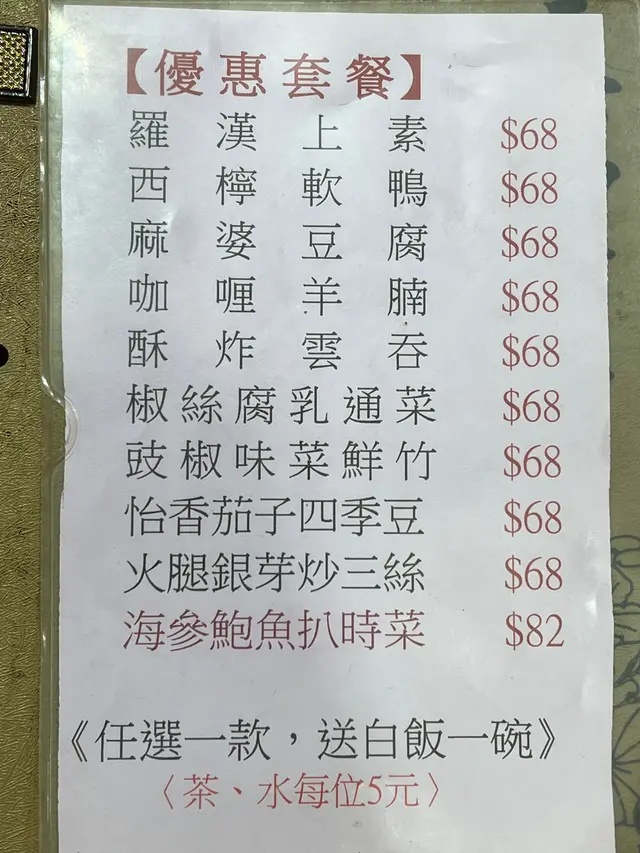 【優惠套餐】
羅漢上素 $68
西檸軟鴨 $68
麻婆豆腐 $68
咖喱羊腩 $68
酥炸雲吞 $68
椒絲腐乳通菜 $68
豉椒味菜鮮竹 $68
怡香茄子四季豆 $68
火腿銀芽炒三絲 $68
海參鮑魚扒時菜 $82
《任選一款，送白飯一碗》
〈茶、水每位5元〉